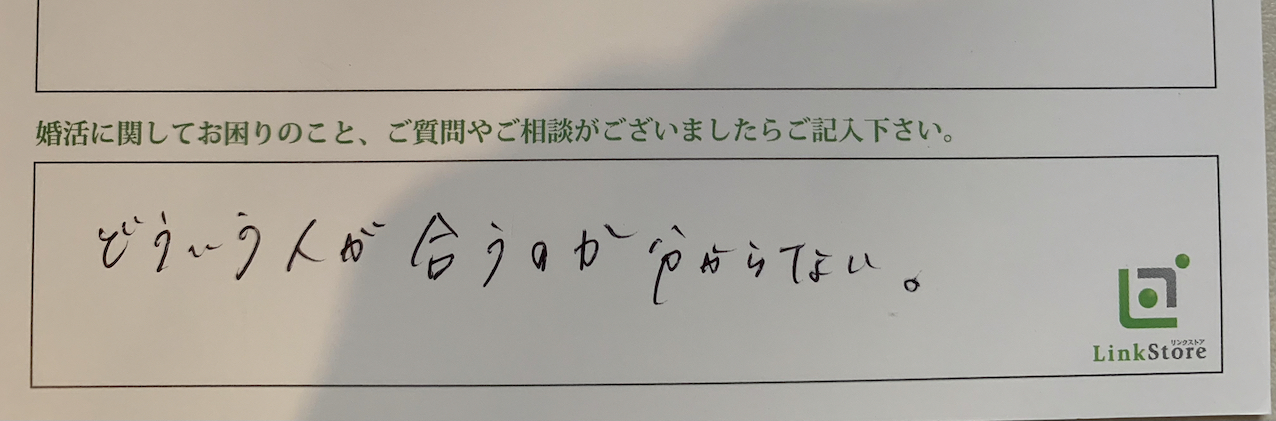 婚活に関してお困りのこと、ご質問やご相談がございましたらご記入下さい。
どういう人が合うのか分からない。
リンクストア
LinkStore